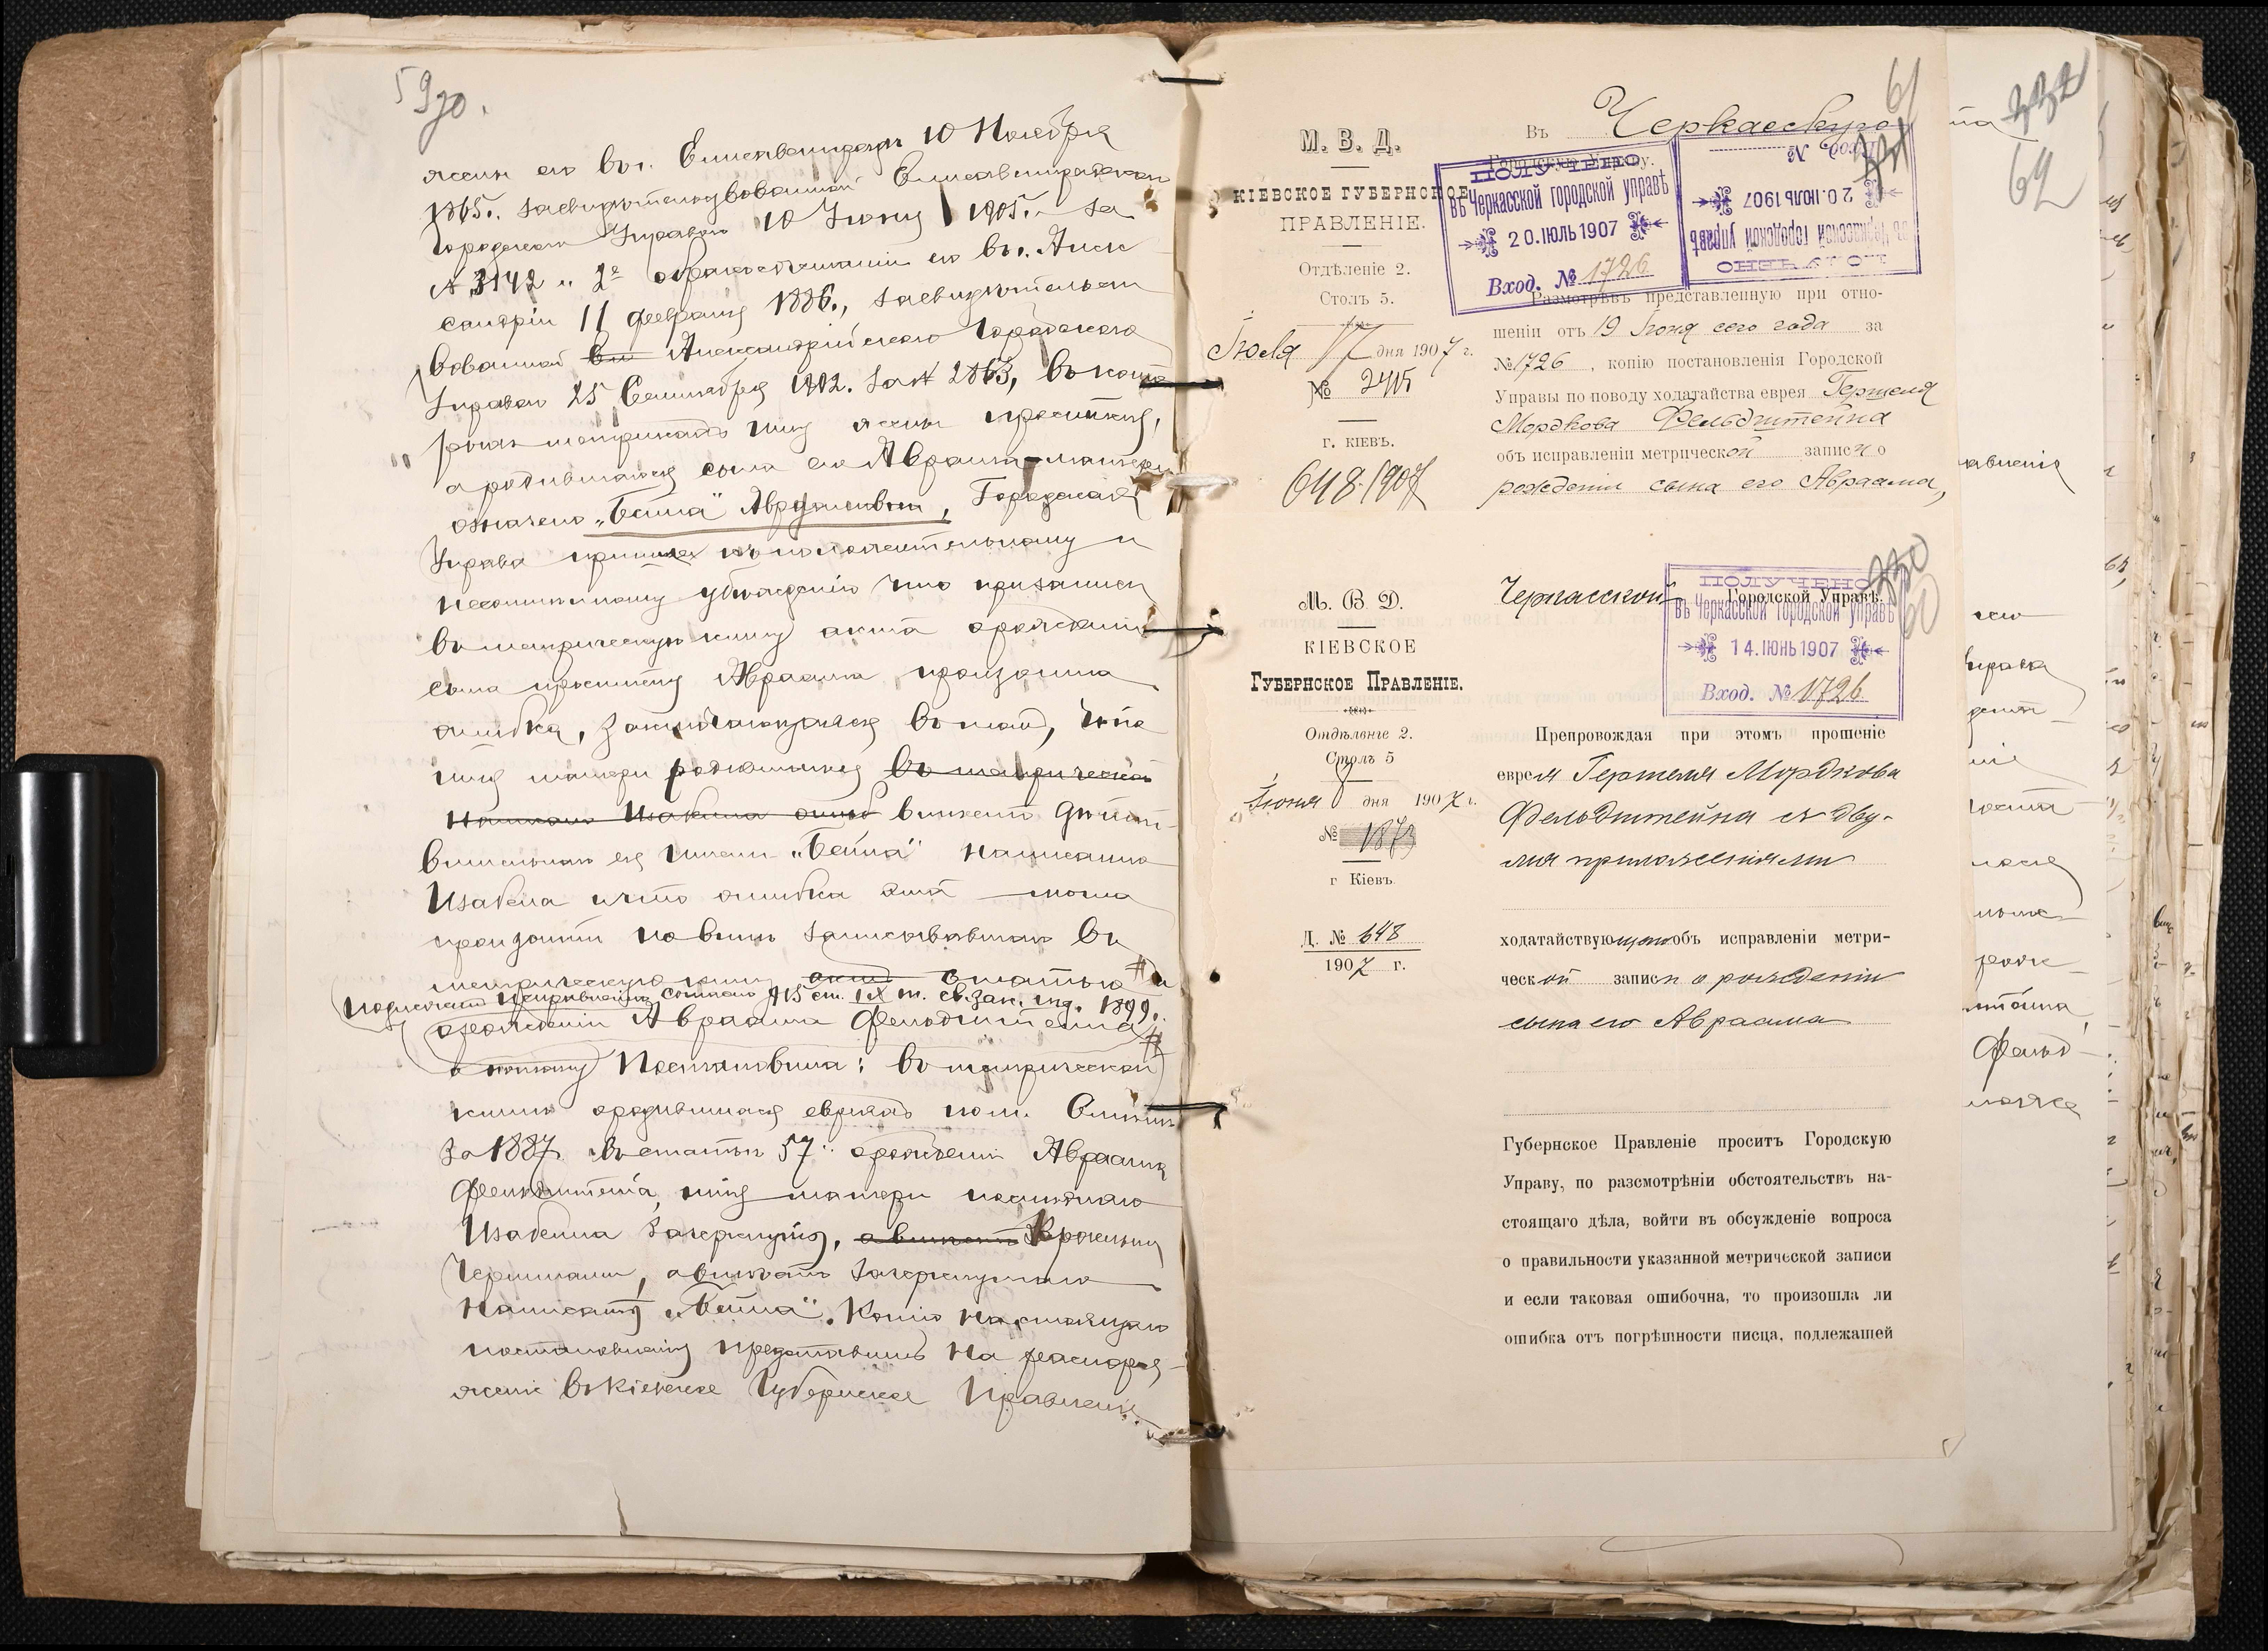 59 об.
жены его въ г. Елисаветградѣ 10 Ноября
1865 г. засвидѣтельствованной Елисаветградскою
Городскою Управою 10 Іюня 1905 г. за
№ 3142 и 2е о бракосочетаніи его въ г. Алек
сандріи 11 февраля 1886 г., засвидѣтельст
вованной Александрійскою Городскою
Управою 25 Сентября 1902 г. за № 2863, въ кото
рыхъ метрикахъ имя жены просителя,
а родившагося сына его Авраама – матери
означено „Бейла"
Городская
Управа пришла къ положительному и
несомнѣнному убѣжденію что при записи
въ метрическую книгу акта о рожденіи
сына просителя Авраама произошла
ошибка, заключающаяся въ томъ, что
имя матери родившагося въ метрической
вмѣсто дѣйст-
вительнаго ея имени „Бейла" написано
Изабела и что ошибка эта могла
произойти по винѣ записывавшаго въ
метрическую книгу актъ статью #
подлежитъ исправленію согласно 915 ст. IX т. св. зак. изд. 1899 г.
о рожденіи Авраама Фельдштейна #
а потому Постановила: въ метрической
книгѣ о родившихся евреяхъ
за 1887 г. въ статьѣ 57й о рожденіи Авраама
Фельдштейна, имя матери послѣдняго
Изабелла зачеркнуть, а вмѣсто красными
чернилами, а вмѣсто зачеркнутаго
написать „Бейла". Копію настоящаго
постановленія представить на распоря-
женіе въ Кіевское Губернское Правленіе.
61
М. В. Д.
КІЕВСКОЕ ГУБЕРНСКОЕ
ПРАВЛЕНІЕ.
Отдѣленіе 2.
Столъ 5.
Іюля 17 дня 1907 г.
№ 2415
г. КІЕВЪ.
648/1907
Въ Черкасскую
Городскую Управу.
ПОЛУЧЕНО
въ Черкасской городской управѣ
20. ІЮЛЬ 1907
Вход. № 1726
ПОЛУЧЕНО
въ Черкасской городской управѣ
20. ІЮЛЬ 1907
Вход. №
Размотрѣвъ представленную при отно-
шеніи отъ 19 Іюня сего года за
№ 1726, копію постановленія Городской
Управы по поводу ходатайства еврея Гершеля
Мордкова Фельдштейна
объ исправленіи метрической записи о
рожденіи сына его Авраама,
М. В. Д.
КІЕВСКОЕ
ГУБЕРНСКОЕ ПРАВЛЕНІЕ.
Отдѣленіе 2.
Столъ 5
Іюня 9 дня 1907 г.
№ 1873
г Кіевъ.
Д. № 648
1907 г.
Черкасской Городской Управѣ.
330
60
ПОЛУЧЕНО
въ Черкасской городской управѣ
14. ІЮНЬ 1907
Вход. № 1726
Препровождая при этомъ прошеніе
еврея Гершеля Мордкова
Фельдштейна съ дву-
мя приложеніями
ходатайствующаго объ исправленіи метри-
ческой записи о рожденіи
сына его Авраама
Губернское Правленіе проситъ Городскую
Управу, по разсмотрѣніи обстоятельствъ на-
стоящаго дѣла, войти въ обсужденіе вопроса
о правильности указанной метрической записи
и если таковая ошибочна, то произошла ли
ошибка отъ погрѣшности писца, подлежащей
332
62